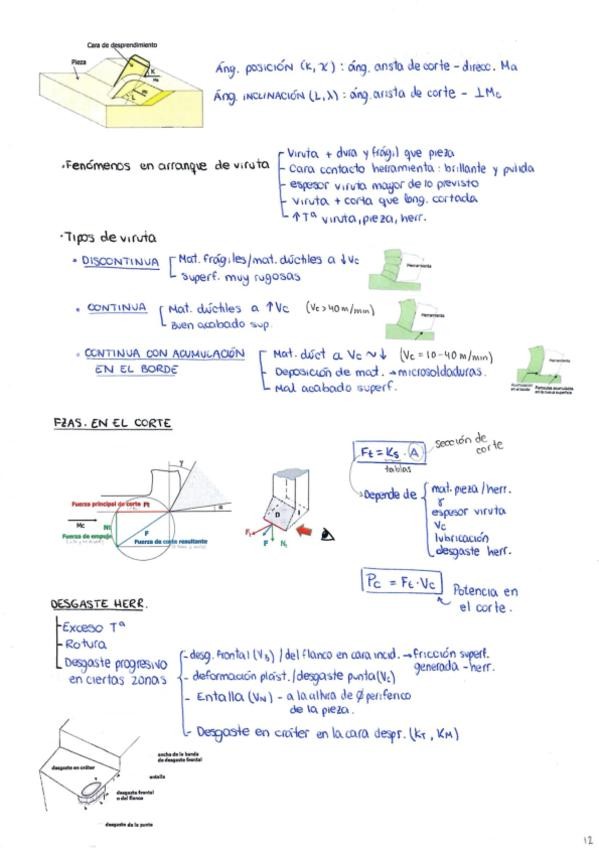 Cara de desprendimiento
Pieza
K
Ma
L
Áng. POSICIÓN (K, χ) : áng. arista de corte - direcc. Ma
Áng. INCLINACIÓN (L, λ) : áng. arista de corte - ⊥ Mc
· Fenómenos en arranque de viruta
- Viruta + dura y frágil que pieza
- Cara contacto herramienta: brillante y pulida
- espesor viruta mayor de lo previsto
- viruta + corta que long. cortada
- ↑ Tª viruta, pieza, herr.
· Tipos de viruta
• DISCONTINUA
Mat. frágiles/mat. dúctiles a ↓Vc
superf. muy rugosas
Herramienta
• CONTINUA
Mat. dúctiles a ↑Vc (Vc > 40 m/min)
Buen acabado sup.
Herramienta
• CONTINUA CON ACUMULACIÓN
EN EL BORDE
Mat. dúct a Vc ~ ↓ (Vc = 10-40 m/min)
Deposición de mat. → microsoldaduras.
Mal acabado superf.
Herramienta
Acumulación
en el borde
Partículas acumuladas
en la nueva superficie
FZAS. EN EL CORTE
γ
Fuerza principal de corte Ft
α
Mc
Nt
F
Fuerza de empuje
Fuerza de corte resultante
D
Ft
F
Nt
Ft = Ks · A
sección de
corte
tablas
Depende de
mat. pieza / herr.
γ
espesor viruta
Vc
lubricación
desgaste herr.
Pc = Ft · Vc
Potencia en
el corte.
DESGASTE HERR.
Exceso Tª
Rotura
Desgaste progresivo
en ciertas zonas
- desg. frontal (VB) / del flanco en cara incid. → fricción superf.
generada - herr.
- deformación plást. / desgaste punta (Vc)
- Entalla (VN) - a la altura de Ø periférico
de la pieza.
- Desgaste en cráter en la cara despr. (KT, KM)
desgaste en cráter
ancho de la banda
de desgaste frontal
entalla
desgaste frontal
o del flanco
desgaste de la punta
12